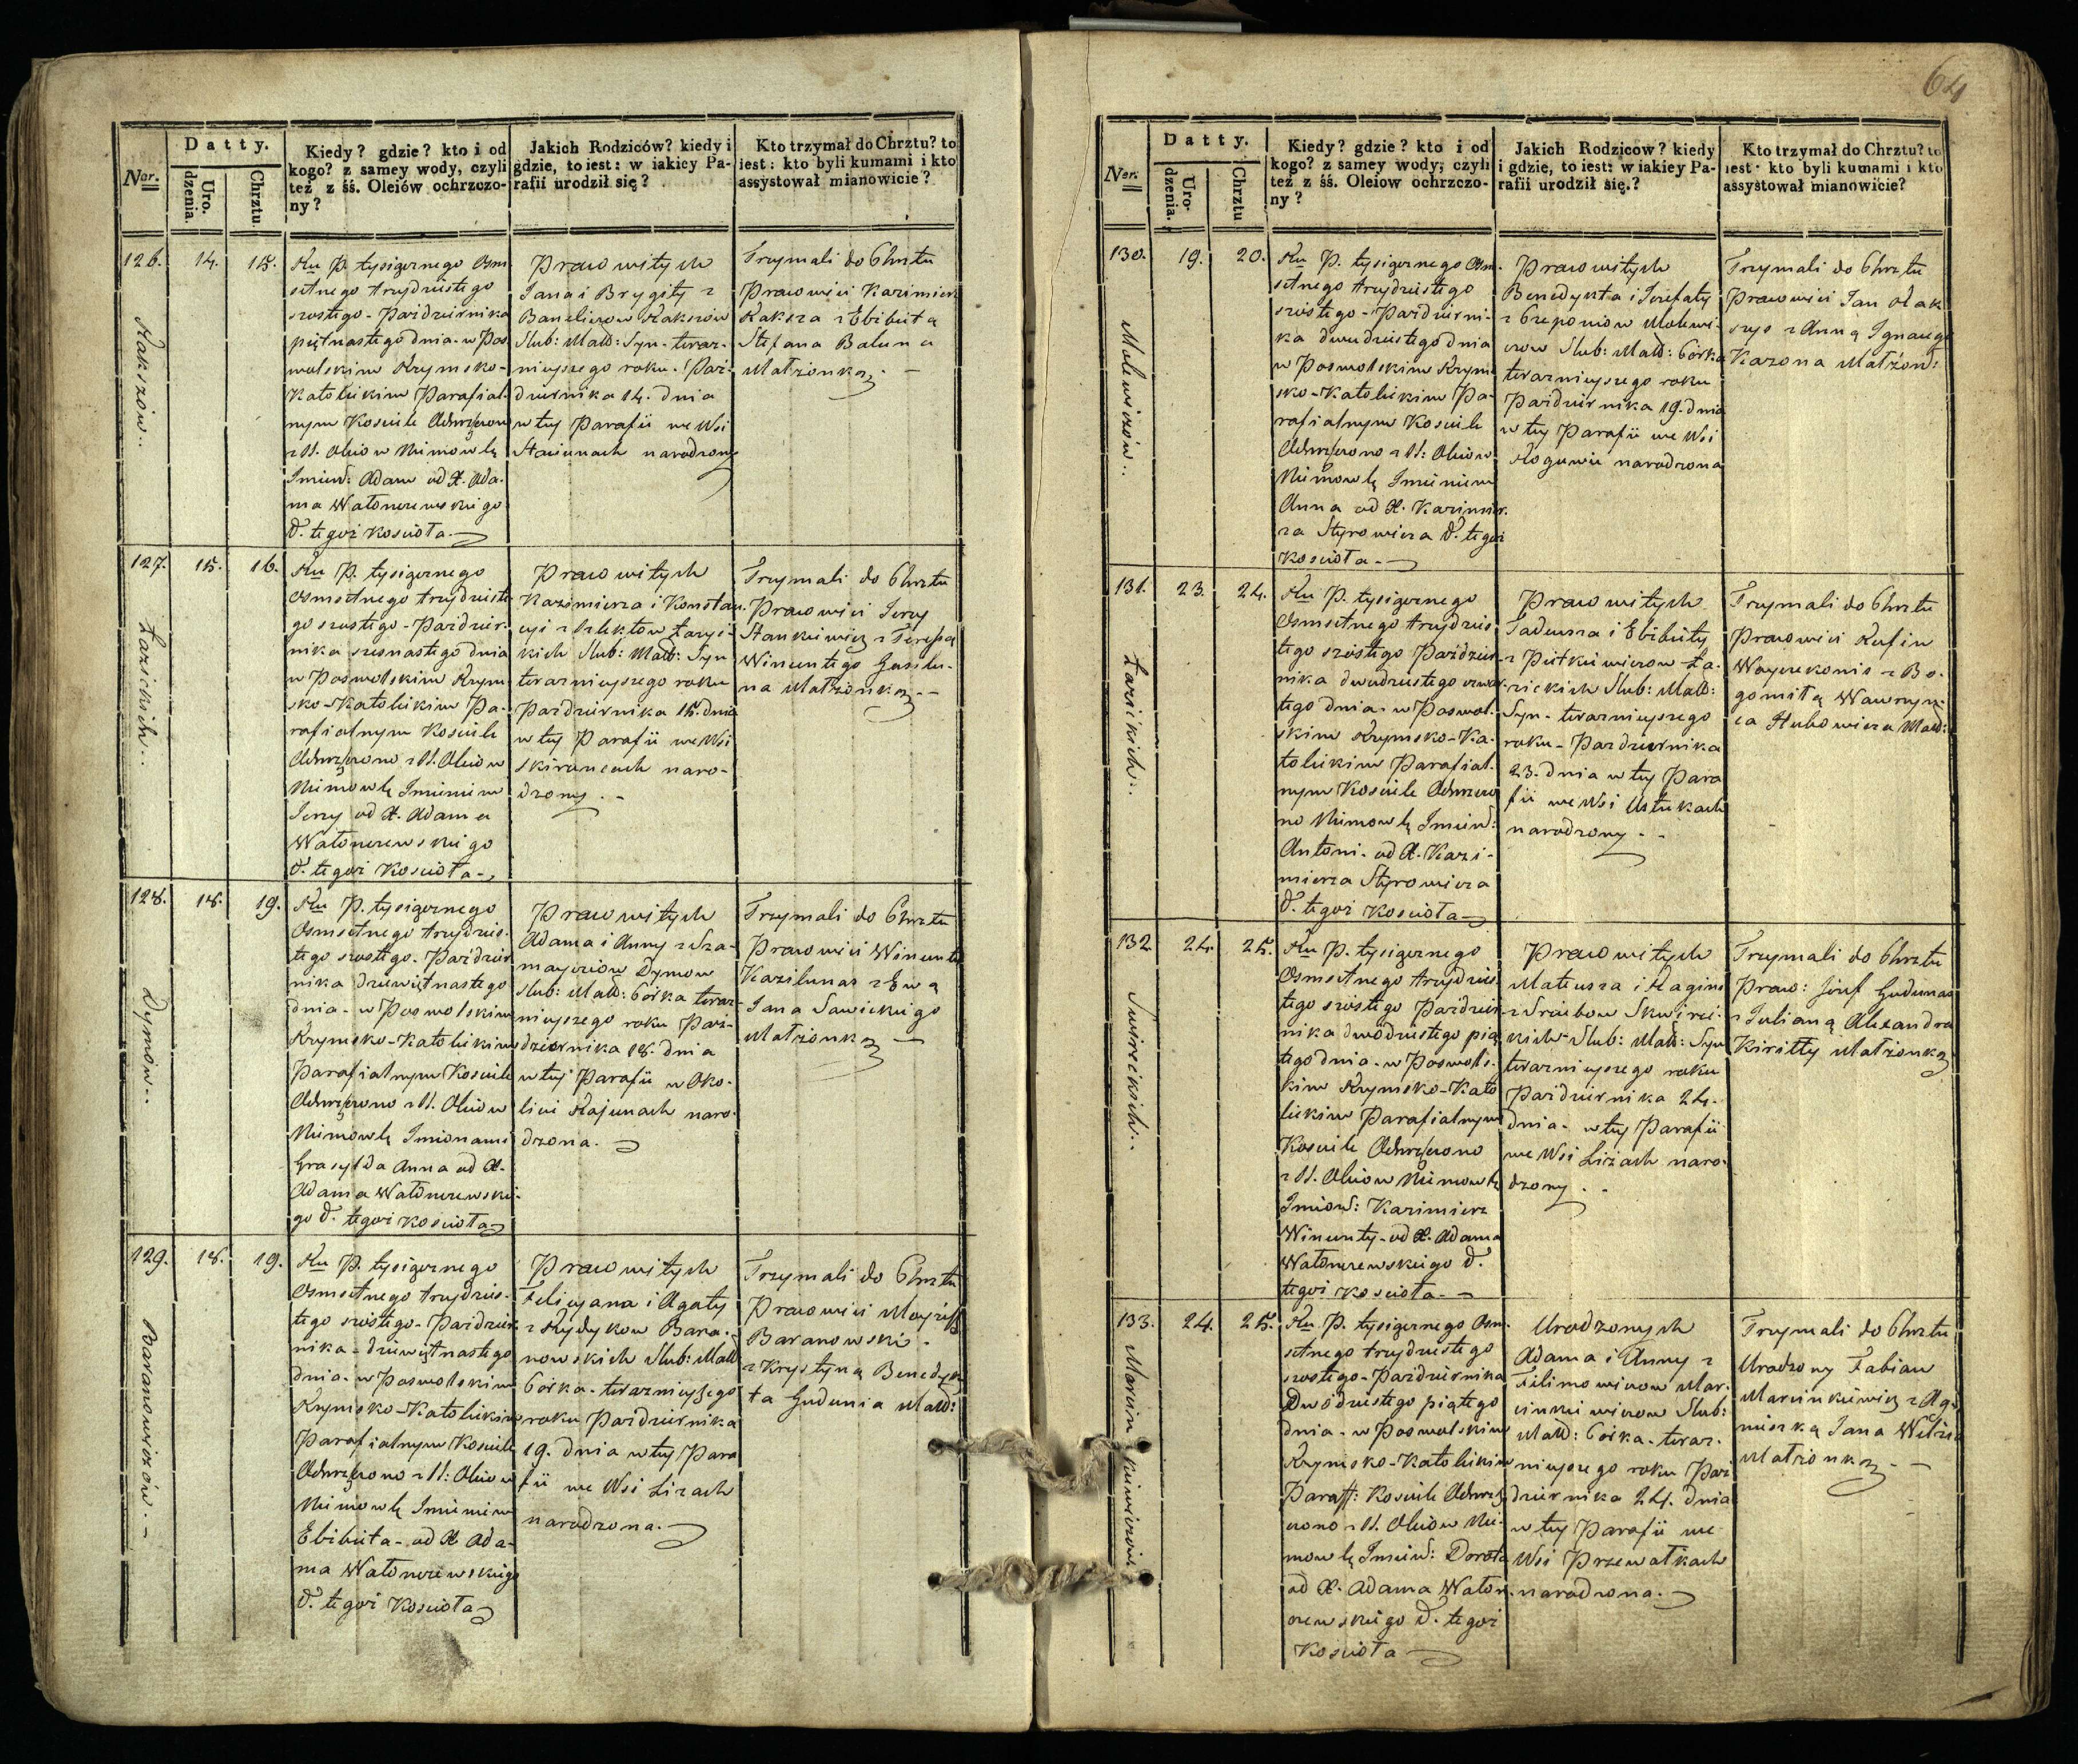 64
Nor.
Datty.
Uro.
dzenia.
Chrztu.
Kiedy? gdzie? kto i od
kogo? z samey wody, czyli
też z śś. Oleiów ochrzczo-
ny?
Jakich Rodziców? kiedy i
gdzie, to iest: w iakiey Pa-
rafii urodził się?
Kto trzymał do Chrztu? to
iest: kto byli kumami i kto
assystował mianowicie?
126.
14.
15.
Rakszów..
Ru P. tysiącznego Osm-
setnego trzydziestego
szostego - Pazdziernika
piętnastego dnia - w Pos-
wolskim Rzymsko-
Katolickim Parafial-
nym Kosciele Ochrzczono
z SS. Oleiow Niemowlę
Imien: Adam od X. Ada-
ma Wałonczewskiego
tegoż Kościoła.
Prawowitych
Jana i Brygity z
Rakszów
Slub: Małż: Syn - teraz-
nieyszego roku Paz-
dziernika 14. dnia
w tey Parafii we Wsi
Staciunach narodzony
Trzymali do Chrztu
Prawowici Kazimierz
Raksza z Elżbietą
Stefana Baluna
Małżonką -
127.
15.
16.
Łazickich..
Ru P. tysiącznego
Osmsetnego trzydzieste-
go szostego - Pazdzier-
nika szesnastego dnia
w Poswolskim Rzym-
sko-Katolickim Pa-
rafialnym Kosciele
Ochrzczono z SS. Oleiow
Niemowlę Imieniem
Jerzy od X. Adama
Wałonczewskiego
tegoż Kościoła -
Prawowitych
Kazimierza i Konstan-
cyi z Łazic-
kich Slub: Małż: Syn
teraznieyszego roku
Pazdziernika 15. dnia
w tey Parafii we Wsi
Skirancach naro-
dzony. -
Trzymali do Chrztu
Prawowici Jerzy
Stankiewicz z Teressą
Wincentego Gasilu-
na Małżonką --
128.
18.
19.
Dymów..
Ru P. tysiącznego
Osmsetnego trzydzies-
tego szostego. Pazdzier-
nika dziewiętnastego
dnia - w Poswolskim
Rzymsko-Katolickim
Parafialnym Kosciele
Ochrzczono z SS. Oleiow
Niemowlę Imionami
Grasylda Anna od X.
Adama Wałonczewskie-
go tegoż Kościoła
Prawowitych
Adama i Anny z Sza-
Dymow
Slub: Małż: Córka teraz-
nieyszego roku Paz-
dziernika 18. dnia
w tey Parafii w Oko-
licy Rajunach naro-
dzona.
Trzymali do Chrztu
Prawowici Wincenty
Kazilunas z Ewą
Jana Sawickiego
Małżonką -
129.
18.
19.
Baranowiczów. -
Ru P. tysiącznego
Osmsetnego trzydzies-
tego szostego - Pazdzier-
nika - dziewiętnastego
dnia - w Poswolskim
Rzymsko-Katolickim
Parafialnym Kosciele
Ochrzczono z SS: Oleiow
Niemowlę Imieniem
Elżbieta - od X Ada-
ma Wałonczewskiego
tegoż Kościoła
Prawowitych
Felicyana i Agaty
z Rydykow Bara-
nowskich Slub: Małż
Córka - teraznieyszego
roku Pazdziernika
19. dnia w tey Para
fii we Wsi Lizach
narodzona.
Trzymali do Chrztu
Prawowici Moyżesz
Baranowski -
z Krystyną Benedyk
ta Gudunia Małż:
Ner.
Datty.
Uro-
dzenia.
Chrztu
Kiedy? gdzie? kto i od
kogo? z samey wody; czyli
też z śś. Oleiow ochrzczo-
ny?
Jakich Rodziców? kiedy
i gdzie, to iest: w iakiey Pa-
rafii urodził się.?
Kto trzymał do Chrztu? to
iest: kto byli kumami i kto
assystował mianowicie?
130.
19.
20.
Malewiczów..
Ru P. tysiącznego Osm-
setnego trzydziestego
szóstego - Pazdzierni-
ka dwudziestego dnia
w Poswolskim Rzym-
sko-Katolickim Pa-
rafialnym Kosciele
Ochrzczono z SS: Oleiow
Niemowlę Imieniem
Anna od X. Kazimie-
rza Styrowicza tegoż
Kościoła. -
Prawowitych
Benedykta i Jozefaty
z Czeponiow Malewi-
czow Slub: Małż: Córka
teraznieyszego roku
Pazdziernika 19. dnia
w tey Parafii we Wsi
Roguwie narodzona
Trzymali do Chrztu
Prawowici Jan Ołak-
szys z Anną Ignacego
Kazona Małżon:
131.
23.
24.
Łazickich..
Ru P. tysiącznego
Osmsetnego trzydzies-
tego szóstego Pazdzier-
nika dwudziestego czwar-
tego dnia - w Poswol-
skim Rzymsko-Ka-
tolickim Parafial-
nym Kosciele Ochrzczo
no Niemowlę Imien:
Antoni - od X. Kazi-
mierza Styrowicza
tegoż Kościoła
Prawowitych
Tadeusza i Elżbiety
z Piotkiewiczow Ła-
zickich Slub: Małż:
Syn - teraznieyszego
roku - Pazdziernika
23. dnia w tey Para
fii we Wsi Ustukach
narodzony --
Trzymali do Chrztu
Prawowici Rafin
Woyciekonis z Bo-
gomiłą Wawrzyń-
ca Hubowicza Małż:
132
24.
25.
Swireckich..
Ru P. tysiącznego
Osmsetnego trzydzies-
tego szóstego Pazdzier-
nika dwódziestego pią-
tego dnia - w Poswols-
kim Rzymsko-Kato
lickim Parafialnym
Kosciele Ochrzczono
z SS. Oleiow Niemowlę
Imion: Kazimierz
Wincenty - od X. Adama
Wałonczewskiego
tegoż Kościoła. -
Prawowitych
Mateusza i Raginy
z Sraibow Skwirec-
kich - Slub: Małż: Syn
teraznieyszego roku
Pazdziernika 24.
dnia - w tey Parafii
we Wsi Lizach naro-
dzony. -
Trzymali do Chrztu
Praw: Józef Gudunas
z Julianą Alexandra
Kiriłły Małżonką
133.
24.
25.
Marcinkiewiczów
Ru P. tysiącznego Osm-
setnego trzydziestego
szostego - Pazdziernika
Dwódziestego piątego
dnia - w Poswolskim
Rzymsko-Katolickim
Paraff: Kosciele Ochrzcz
ono z SS. Oleiow Nie-
mowlę Imien: Dorota
od X. Adama Wałon-
czewskiego tegoż
Kościoła
Urodzonych
Adama i Anny z
Filimowiczow Mar-
cinkiewiczow Slub:
Małż: Córka - teraz-
nieyszego roku Paz
dziernika 24. dnia
w tey Parafii we
Wsi Przewałkach
narodzona.
Trzymali do Chrztu
Urodzony Fabian
Marcinkiewicz z Ag-
nieszką Jana
Małżonką. -